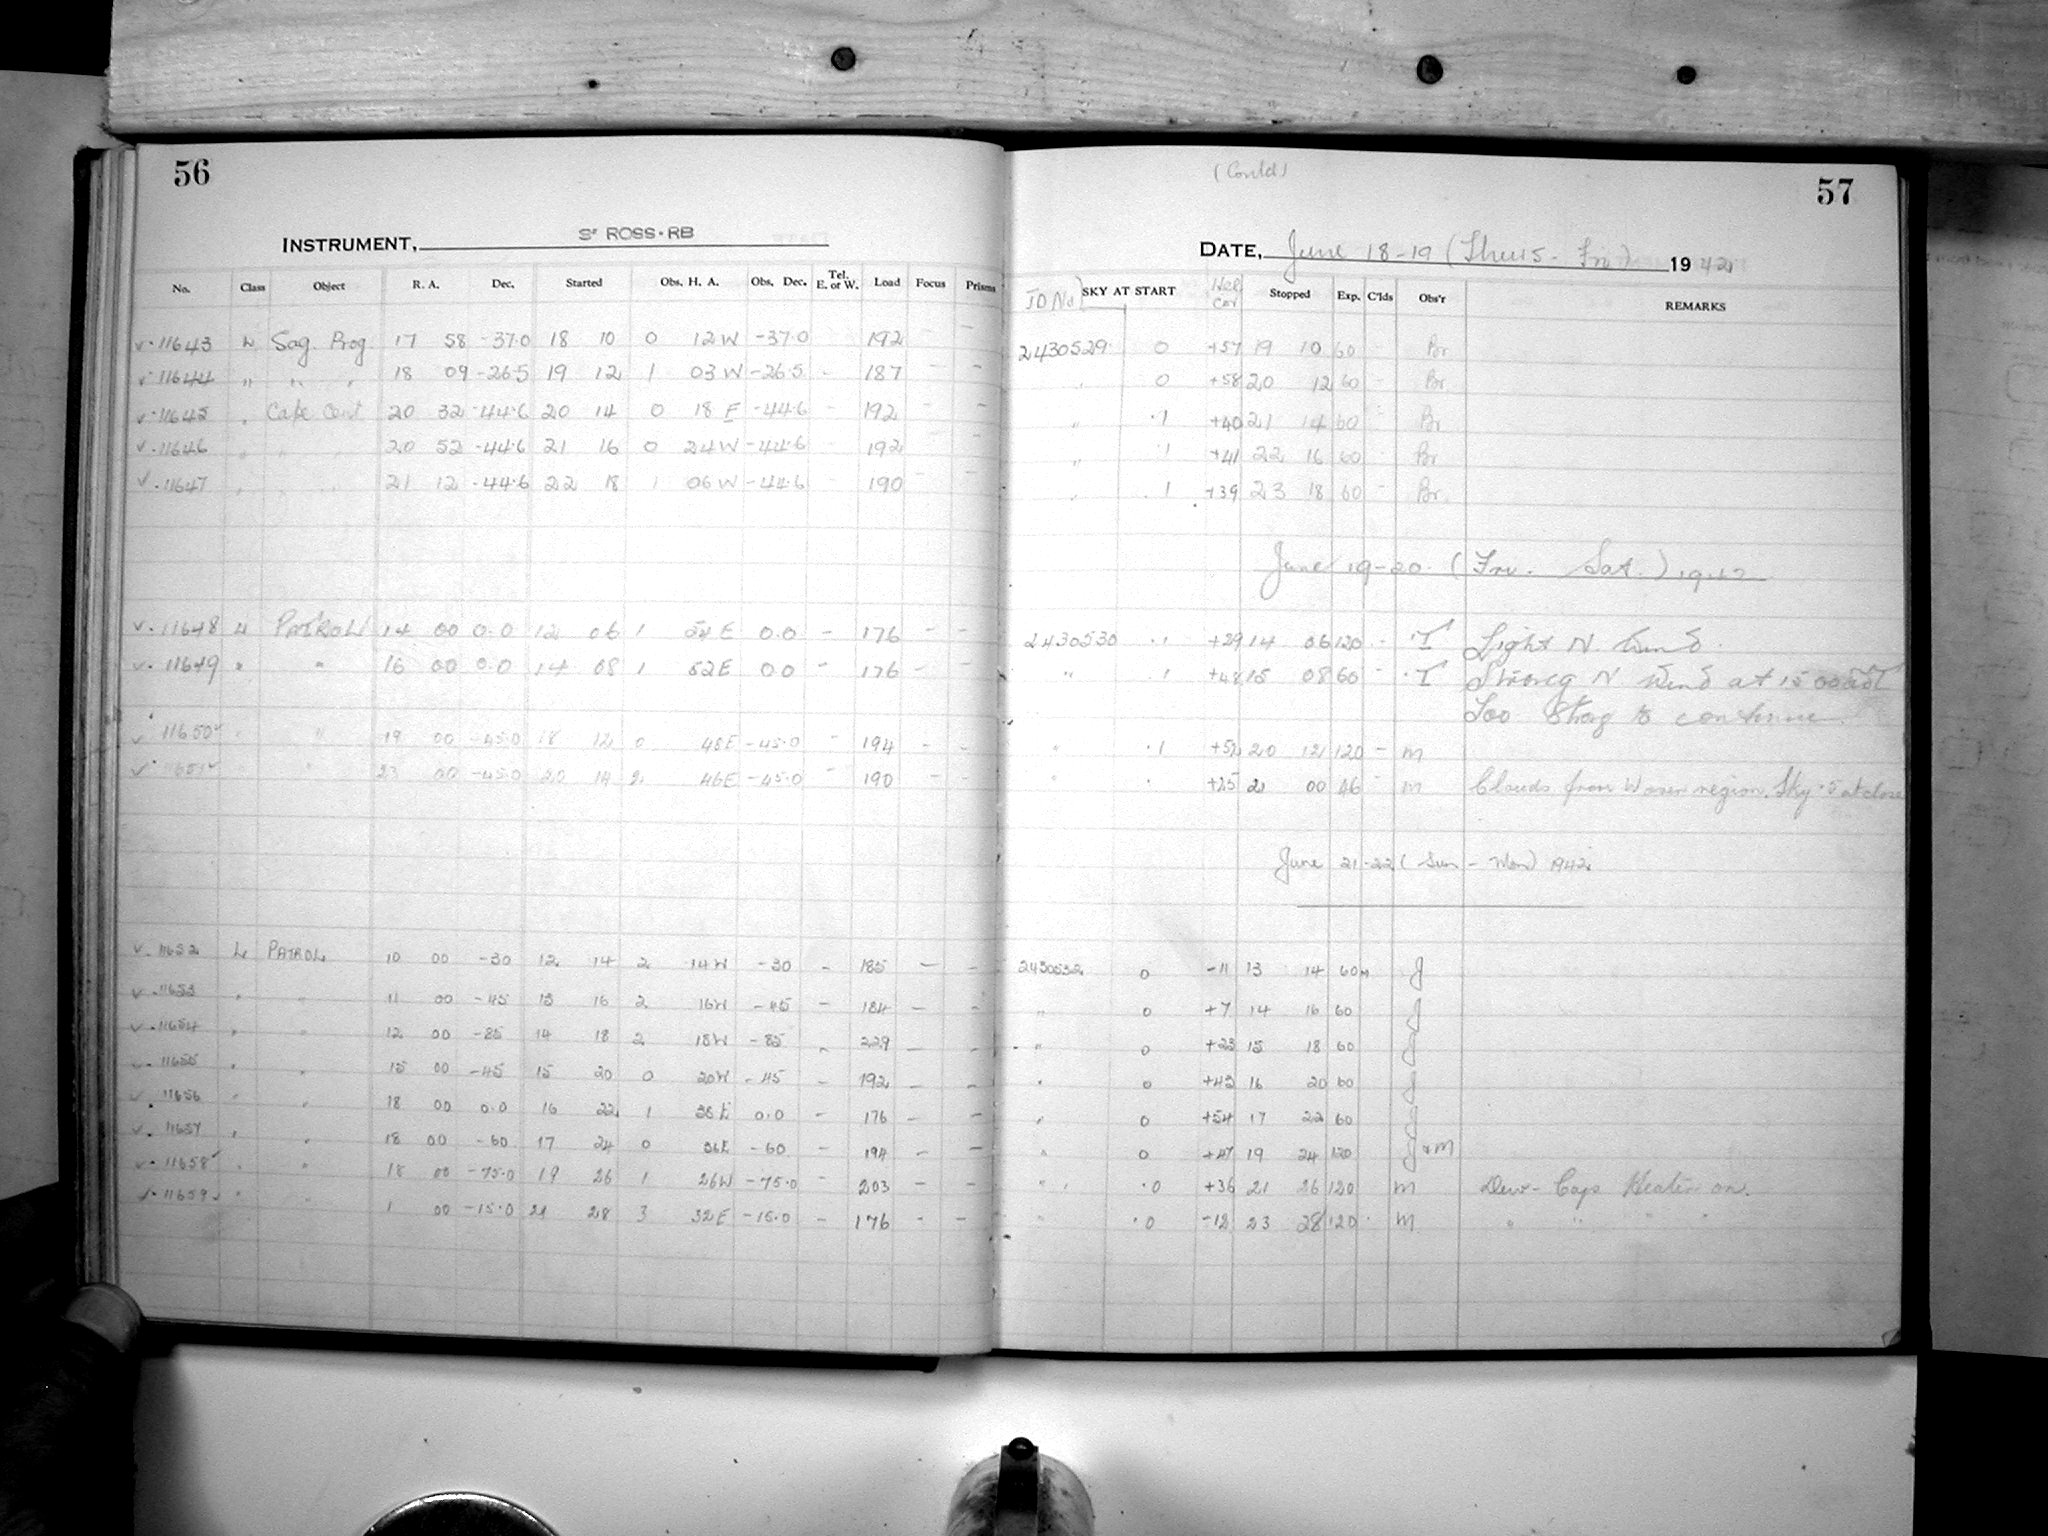 56
INSTRUMENT, 3" ROSS-RB
No. Class Object R. A. Dec. Started Obs. H. A. Obs. Dec. Tel. E. or W. Load Focus Prisms
11643 Sag. Prog. 17 58 -37.0 18 10 0 12W -37.0 192 - -
11644 " " " 18 09 -26.5 19 12 1 03W -26.5 - 187 - -
11645 " Cape Cent 20 32 -44.6 20 14 0 18E -44.6 - 192 - -
11646 " " " 20 52 -44.6 21 16 0 24W -44.6 - 192 - -
11647 " " " 21 12 -44.6 22 18 1 06W -44.6 190 - -
11648 PATROL 14 00 0.0 12 06 1 54E 0.0 - 176 - -
11649 " " 16 00 0.0 14 08 1 52E 0.0 - 176 - -
11650 " " 19 00 -45.0 18 12 0 48E -45.0 - 194 - -
11651 " " 23 00 -45.0 20 14 2 46E -45.0 - 190 - -
11652 L PATROL 10 00 -30 12 14 2 14W -30 - 185 - -
11653 " " 11 00 -45 13 16 2 16W -45 - 184 - -
11654 " " 12 00 -85 14 18 2 18W -85 - 229 - -
11655 " " 15 00 -45 15 20 0 20W -45 - 192 - -
11656 " " 18 00 0.0 16 22 1 38E 0.0 - 176 - -
11657 " " 18 00 -60 17 24 0 36E -60 - 194 - -
11658 " " 18 00 -75.0 19 26 1 26W -75.0 - 203 - -
11659 " " 1 00 -15.0 21 28 3 32E -15.0 - 176 - -
(Contd)
57
DATE, June 18-19 (Thurs - Fri) 1942
JD No SKY AT START Hel Cor Stopped Exp. C'lds Obs'r REMARKS
2430529 0 +57 19 10 60 - Br
" 0 +58 20 12 60 - Br
" .1 +40 21 14 60 - Br
" .1 +41 22 16 60 - Br
" .1 +39 23 18 60 - Br.
June 19-20 (Fri. Sat.) 1942
2430530 .1 +29 14 06 120 - T Light N. Wind.
" .1 +48 15 08 60 - T Strong N Wind at 15 00
Too Strong to continue.
" .1 +52 20 12 120 - M
" +25 21 00 46 - M Clouds from W over region. Sky .5 at close
June 21-22 (Sun - Mon) 1942
2430532 0 -11 13 14 60M J
" 0 +7 14 16 60 J
" 0 +23 15 18 60 J
" 0 +43 16 20 60 J
" 0 +54 17 22 60 J
" 0 +47 19 24 120 J+M
" .0 +36 21 26 120 M Dew-Cap Heater on.
" .0 -12 23 28 120 M " " " "